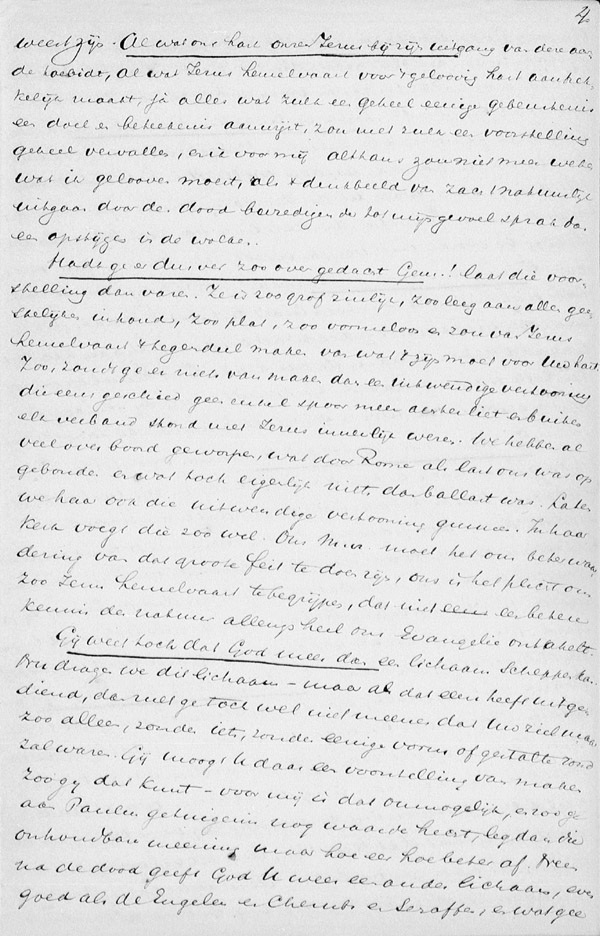 4.
weest zijn. Al wat ons hart onzen Jezus bij zijn uitgang van deze aar-
de toebidt, al wat Jezus hemelvaart voor 't geloovig hart aantrek-
kelijk maakt, ja alles wat zulk een geheel eenige gebeurtenis
een doel en beteekenis aanwijst, zou met zulk een voorstelling
geheel vervallen, en ik voor mij althans zou niet meer weten
wat ik gelooven moest, als 't denkbeeld van zaar natuurlijk
uitgaan door den dood bevredigender tot mijn gevoel sprak dan
een opstijgen in de wolken.
Hadt ge er dus ver zoo over gedacht Gem.! laat die voor-
stelling dan varen. Ze is zoo grof zinlijk, zoo leeg aan allen gee-
stelijken inhoud, zoo plat, zoo vormeloos en zou van Jezus
hemelvaart 't tegendeel maken van wat 't zijn moet voor Uw hart.
Zoo, zoudt ge er niets van maken dan een uitwendige vertooning
die eens geschied geen enkel spoor meer achterliet en buiten
elk verband stond met Jezus innerlijk wezen. We hebben al
veel over boord geworpen, wat door Rome als last ons was op
gebonden en wat toch eigenlijk niets dan ballast was. Laten
we haar ook die uitwendige vertooning gunnen. In haar
kerk voegt die zoo wel. Ons M. v. moet het om beter waar
deering van dat groote feit te doen zijn, ons is het plicht om
zoo Jezus hemelvaart te begrijpen, dat niet een betere
kennis der natuur allengs heel ons Evangelie ontzielt.
Gij weet toch dat God meer dan een lichaam scheppen kan.
Nu dragen we dit lichaam – maar als dat eens heeft uitge-
diend, dan zult ge toch wel niet meenen dat Uw ziel maar
zoo alleen, zonder iets, zonder eenigen vorm of gestalte rond
zal waren. Gij moogt U daar een voorstelling van maken
zoo gy dat kunt – voor mij is dat onmogelijk, en zoo ge
aan Paulus getuigenis nog waarde hecht, leg dan die
onhoudbare meening maar hoe eer hoe beter af. Neen
na de dood geeft God U weer een ander lichaam, even
goed als de Engelen en Cherubs en Seraffs, en wat gee